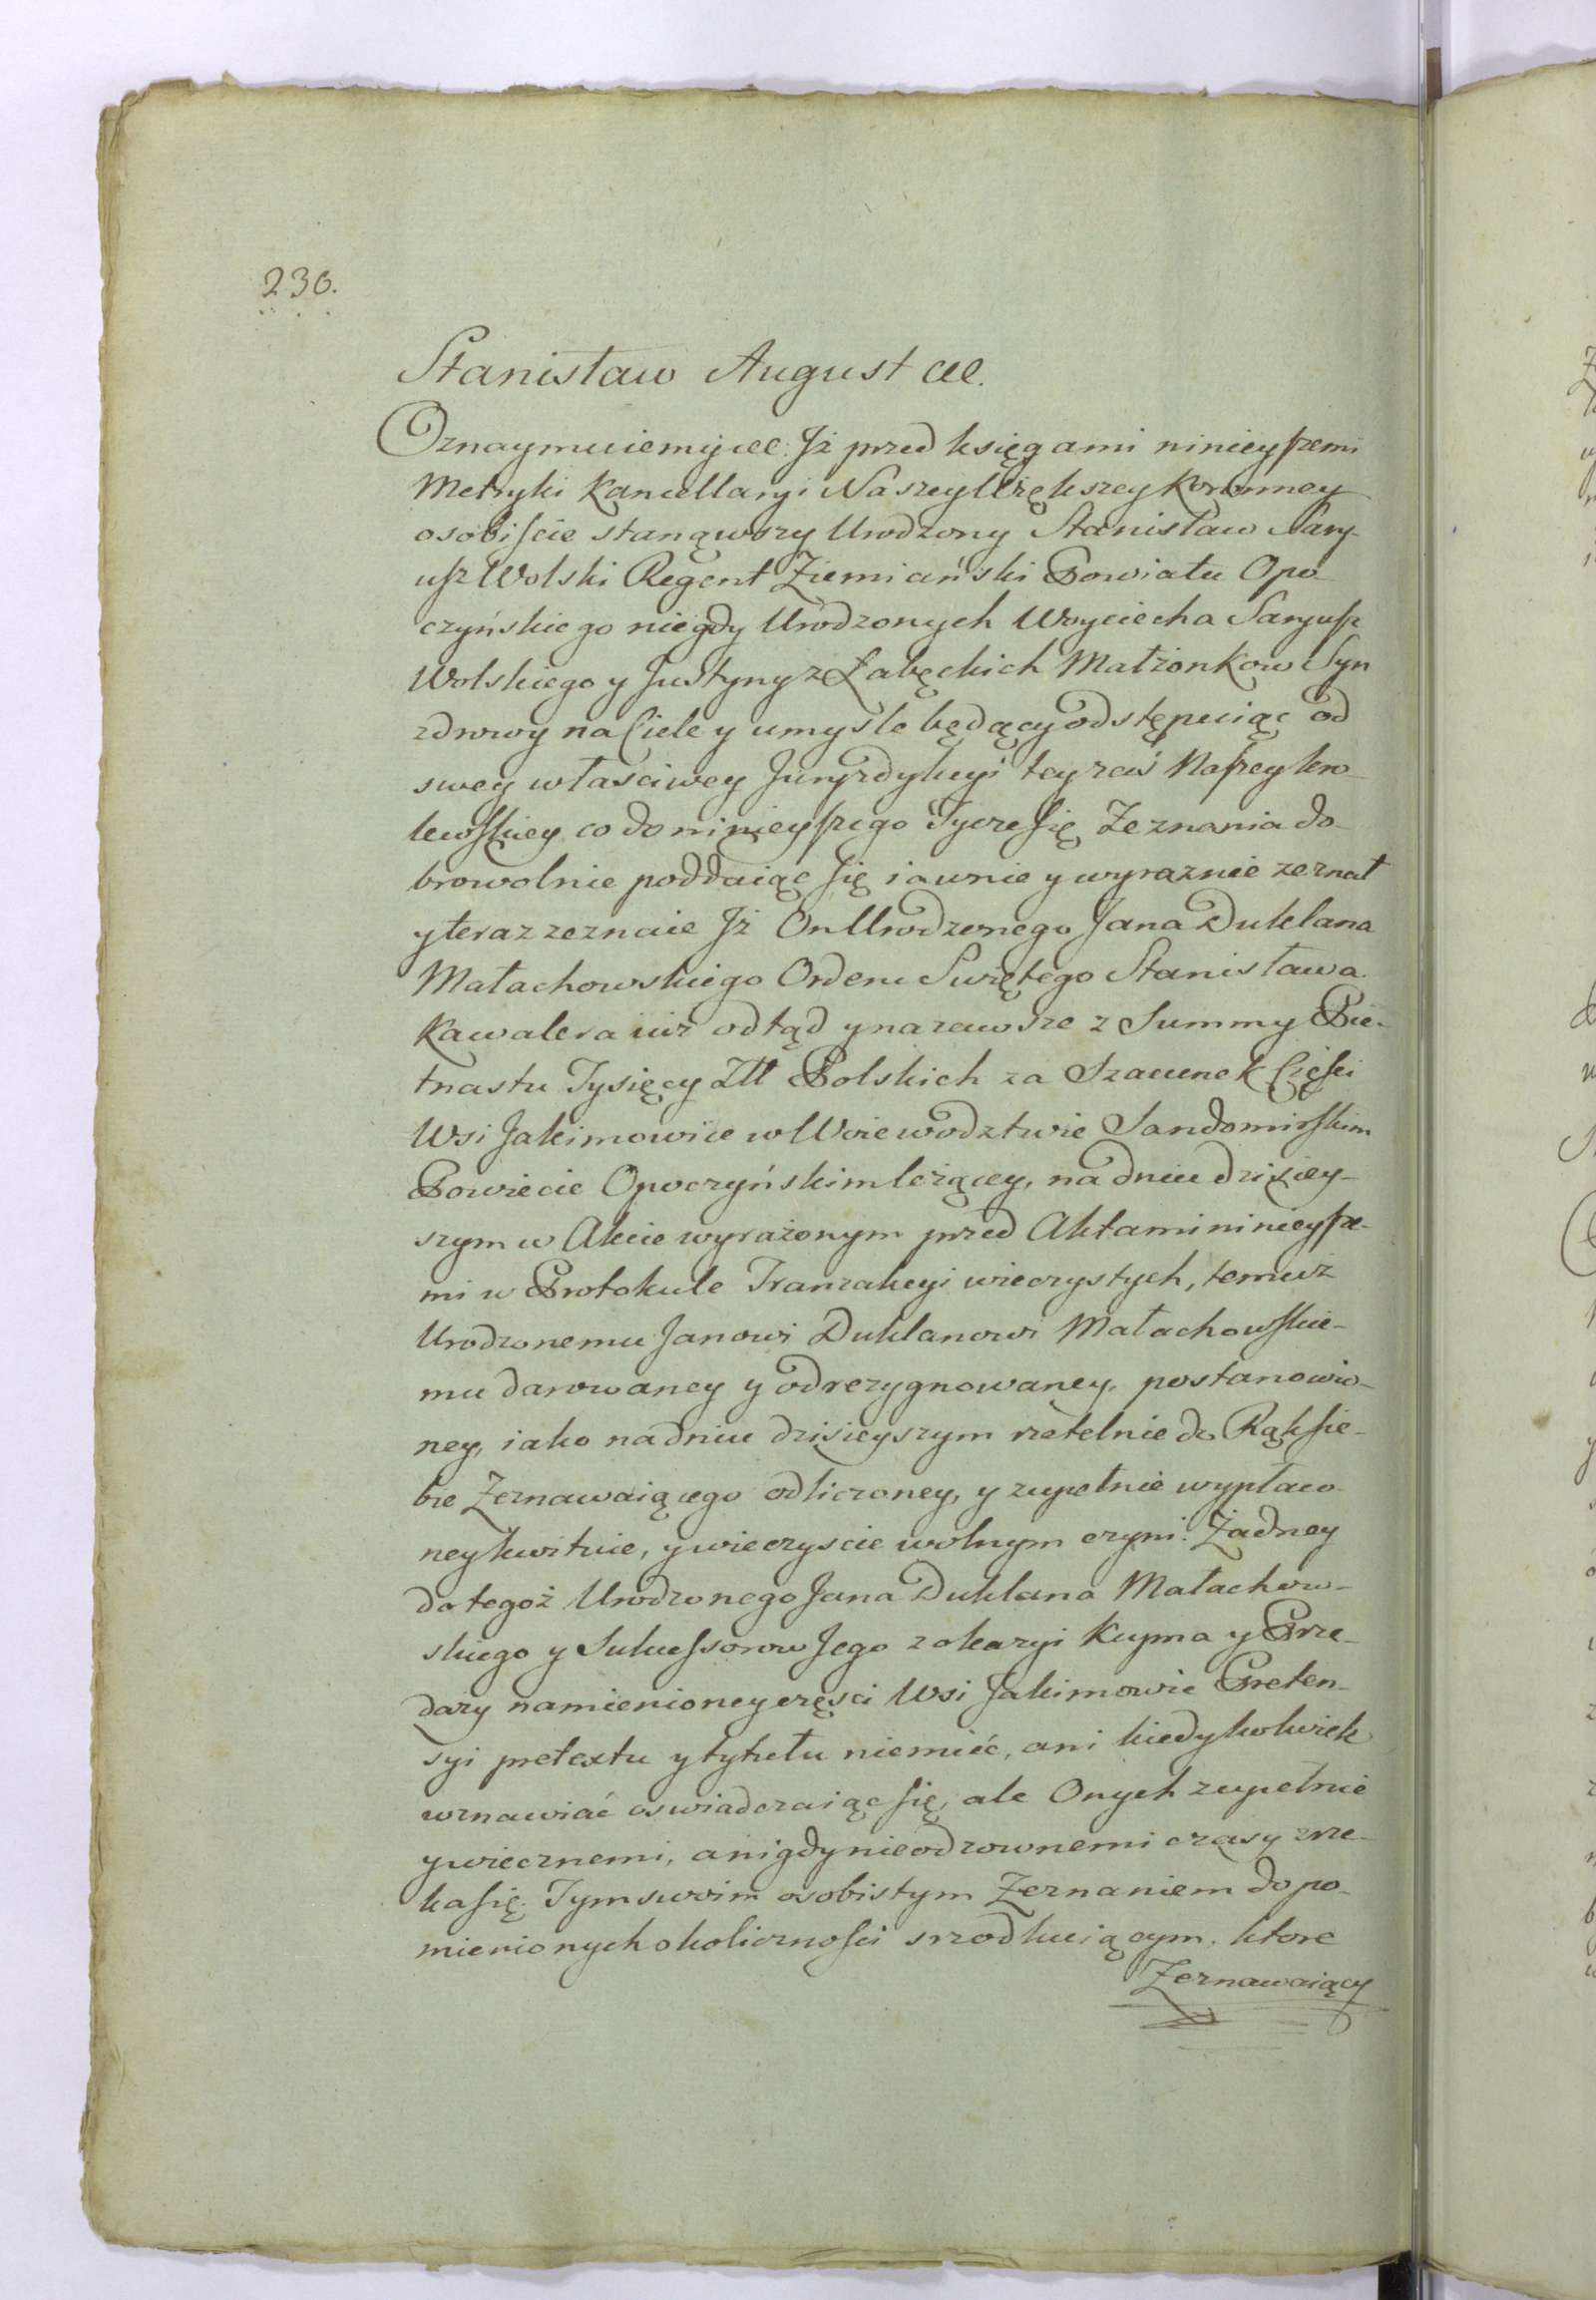 230.
Stanisław August etc.
Oznaymuiemy etc. Jż przed księgami ninieyszemi
Metryki Kancellaryi Naszey Większey Koronney
osobiscie stanąwszy Urodzony Stanisław Sary-
usz Wolski Regent Ziemiański Powiatu Opo-
czyńskiego niegdy Urodzonych Woyciecha Saryusz
Wolskiego y Justyny z Łabęckich Małżonkow Syn
zdrowy na Ciele y umysle będący odstępuiąc od
swey własciwey Juryzdykcyi teyzaś Naszey kro-
lewskiey co do ninieyszego Tycze się Zeznania do-
browolnie poddaiąc się iawnie y wyraznie zeznał
y teraz zeznaie Jż On Urodzonego Jana Duklana
Małachowskiego Orderu Swiętego Stanisława
Kawalera iuż odtąd y nazawsze z Summy Pię-
tnastu Tysięcy Złł Polskich za Szacunek Części
Wsi Jakimowice w Woiewodztwie Sandomirskim
Powiecie Opoczyńskim leżącey, na dniu dzisiey-
szym w Akcie wyrażonym przed Aktami ninieysze-
mi w Protokule Tranzakcyi wieczystych, temuż
Urodzonemu Janowi Duklanowi Małachowskie-
mu darowaney y odrezygnowaney, postanowio-
ney, iako na dniu dzisieyszym rzetelnie do Rąk sie-
bie Zeznawaiącego odliczoney, y zupełnie wypłaco-
ney kwituie, y wieczyscie wolnym czyni. Żadney
do tegoż Urodzonego Jana Duklana Małachow-
skiego y Sukcessorow Jego z okazyi Kupna y Prze-
dazy namienioney częsci Wsi Jakimowic Preten-
syi pretextu y tytułu niemieć, ani kiedykolwiek
wznawiać oswiadczaiąc się, ale Onych zupełnie
y wiecznemi, a nigdy nieodzownemi czasy zrze-
ka się. Tym swoim osobistym Zeznaniem do po-
mienionych okolicznosci srzodkuiącym, ktore
Zeznawaiący